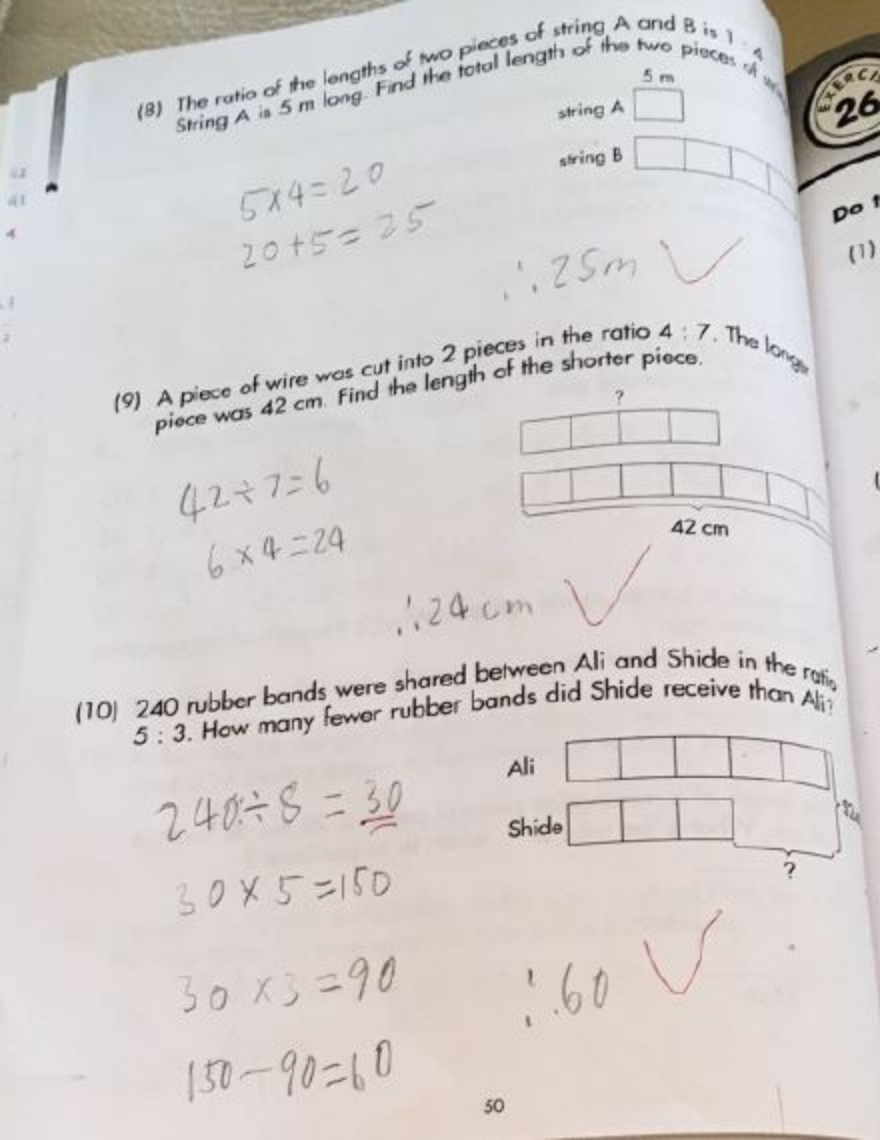 (8) The ratio of the lengths of two pieces of string A and B is 1 : 4.
String A is 5 m long. Find the total length of the two pieces of
5 m
string A
string B
5×4=20
20+5=25
∴25m
(9) A piece of wire was cut into 2 pieces in the ratio 4 : 7. The longer
piece was 42 cm. Find the length of the shorter piece.
?
42 cm
42÷7=6
6×4=24
∴24cm
(10) 240 rubber bands were shared between Ali and Shide in the ratio
5 : 3. How many fewer rubber bands did Shide receive than Ali?
Ali
Shide
?
240÷8=30
30×5=150
30×3=90
150-90=60
∴60
50
EXERCIS
26
Do
(1)